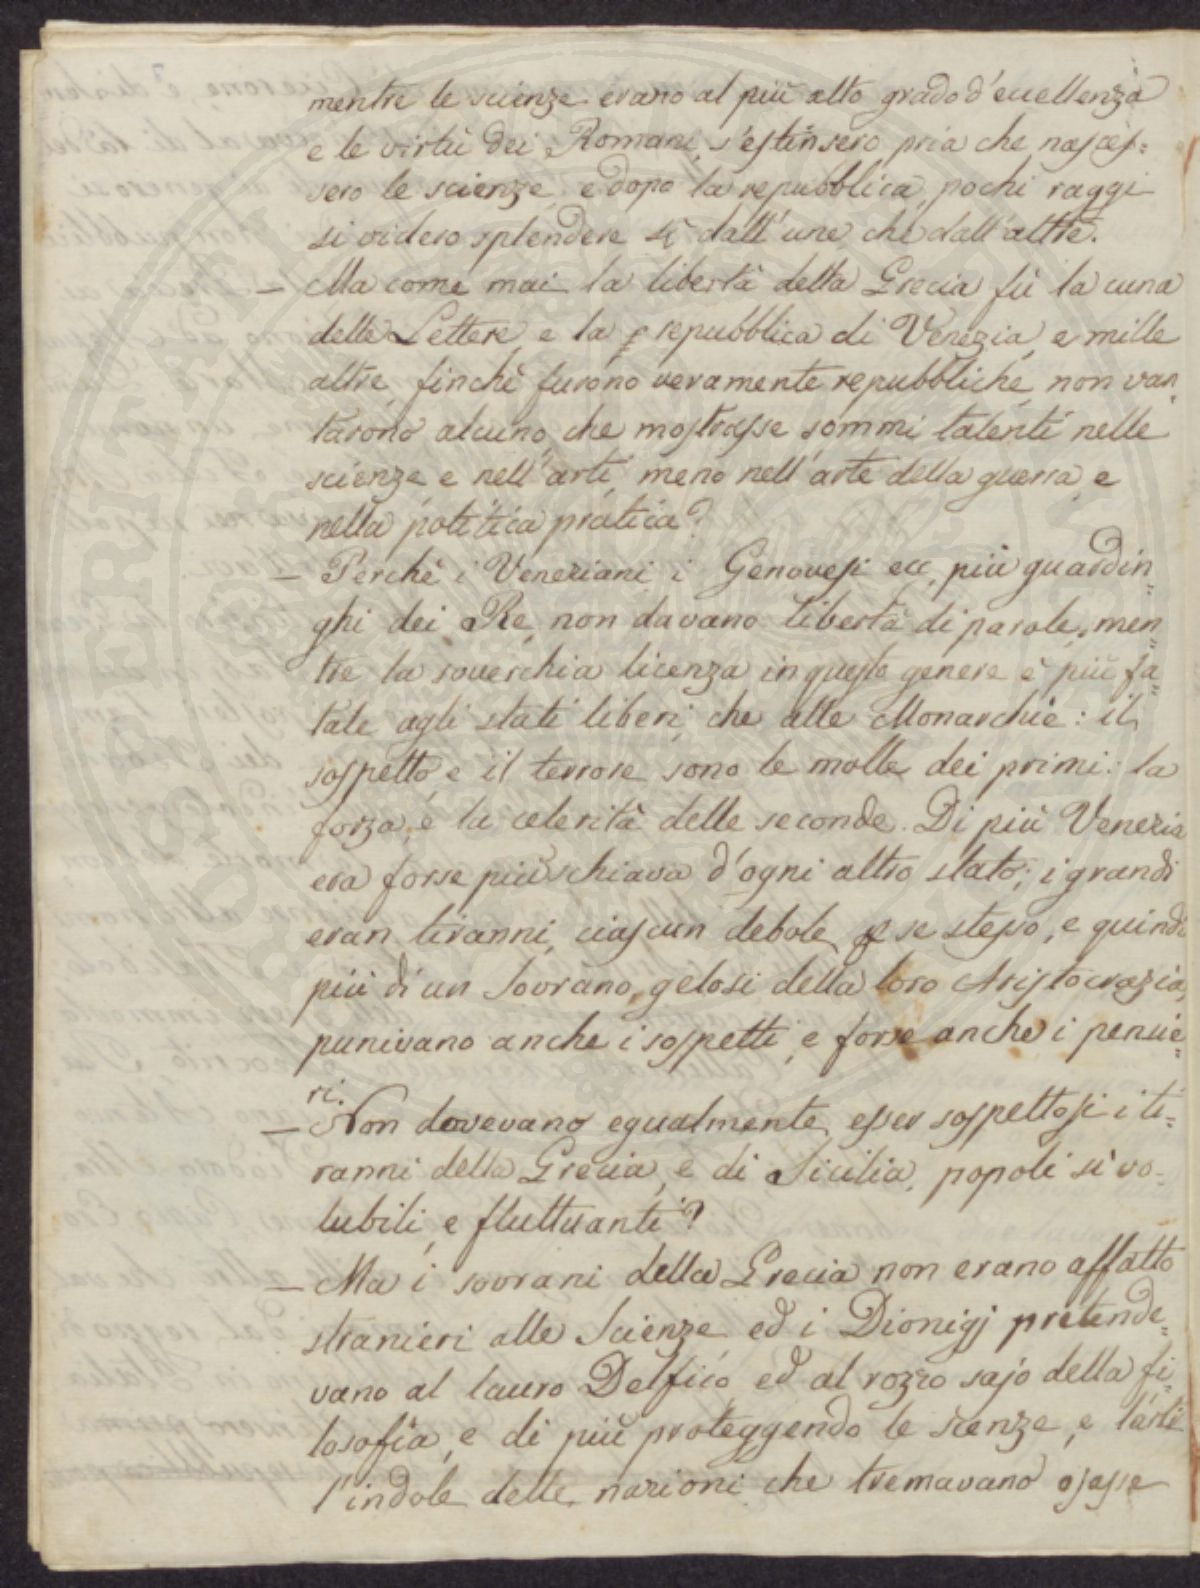 mentre le scienze erano al più alto grado d'eccellenza
e le virtù dei Romani, s'estinsero pria che nasces=
sero le scienze, e dopo la repubblica, pochi raggi
si videro splendere sì dall'une, che dall'altre.
— Ma come mai la libertà della Grecia fù la cuna
delle Lettere, e la repubblica di Venezia, e mille
altre, finchè furono veramente repubbliche, non van=
tarono alcuno, che mostrasse sommi talenti nelle
scienze e nell'arti, meno nell'arte della guerra, e
nella politica pratica?
— Perchè i Veneziani, i Genovesi ecc. più guardin=
ghi dei Re, non davano libertà di parole, men=
tre la soverchia licenza in questo genere è più fa=
tale agli stati liberi, che alle Monarchie: il
sospetto, e il terrore sono le molle dei primi: la
forza, e la celerità delle seconde. Di più Venezia
era forse più schiava d'ogni altro stato; i grandi
eran tiranni, ciascun debole p se stesso, e quindi
più di un Sovrano, gelosi della loro Aristocrazia,
punivano anche i sospetti, e forse anche i pensie=
ri.
— Non dovevano egualmente esser sospettosi i ti=
ranni della Grecia, e di Sicilia, popoli sì vo=
lubili, e fluttuanti?
— Ma i sovrani della Grecia non erano affatto
stranieri alle Scienze, ed i Dionigj pretende=
vano al lauro Delfico, ed al rozzo sajo della fi=
losofia, e di più proteggendo le scenze, e l'arti
l'indole delle nazioni che tremavano osasse